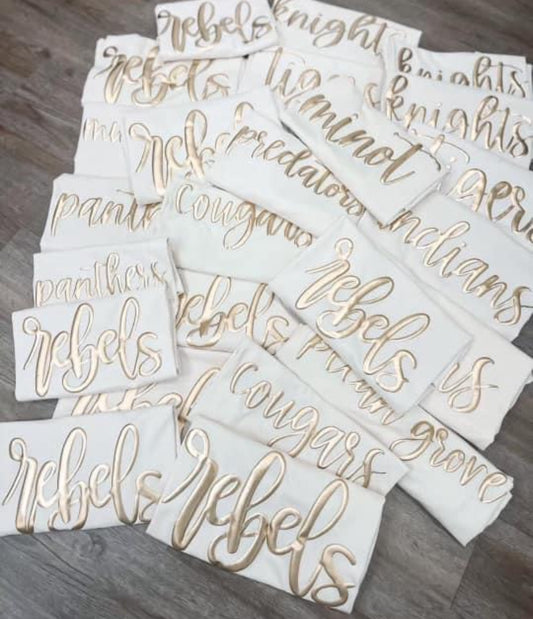 rebels
knights
rebels
knights
tigers
knights
rebels
minot
predators
tigers
panthers
cougars
indians
panthers
rebels
rebels
rebels
rebels
cougars
plain grove
rebels
rebels